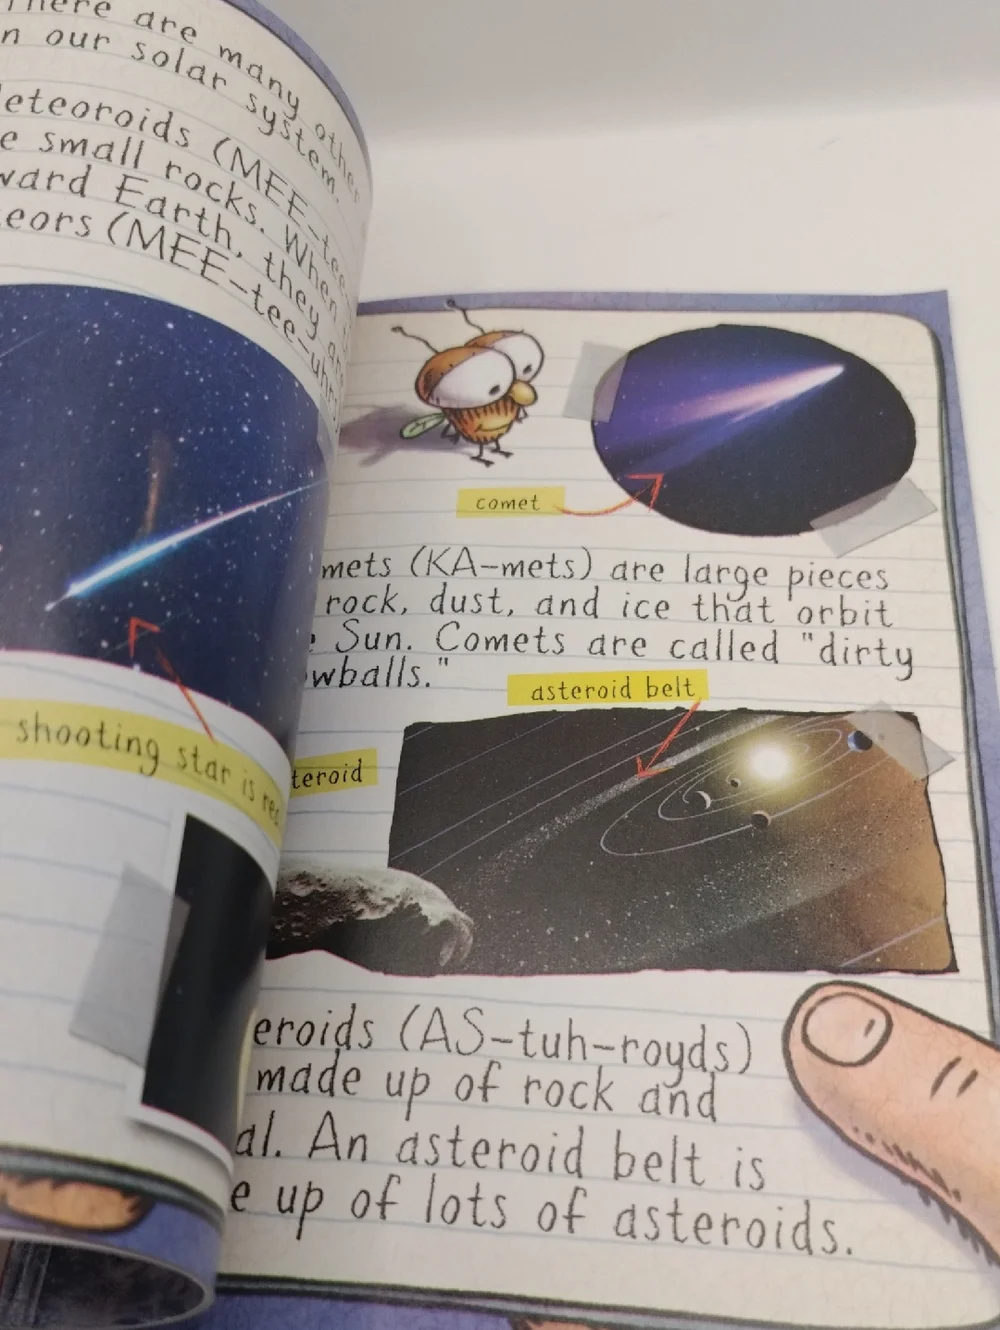 There are many other
n our solar system.
eteoroids (MEE-tee-
e small rocks. When
ward Earth, they
eors (MEE-tee-uhr
shooting star is
comet
mets (KA-mets) are large pieces
rock, dust, and ice that orbit
e Sun. Comets are called "dirty
wballs."
asteroid belt
teroid
eroids (AS-tuh-royds)
made up of rock and
al. An asteroid belt is
e up of lots of asteroids.